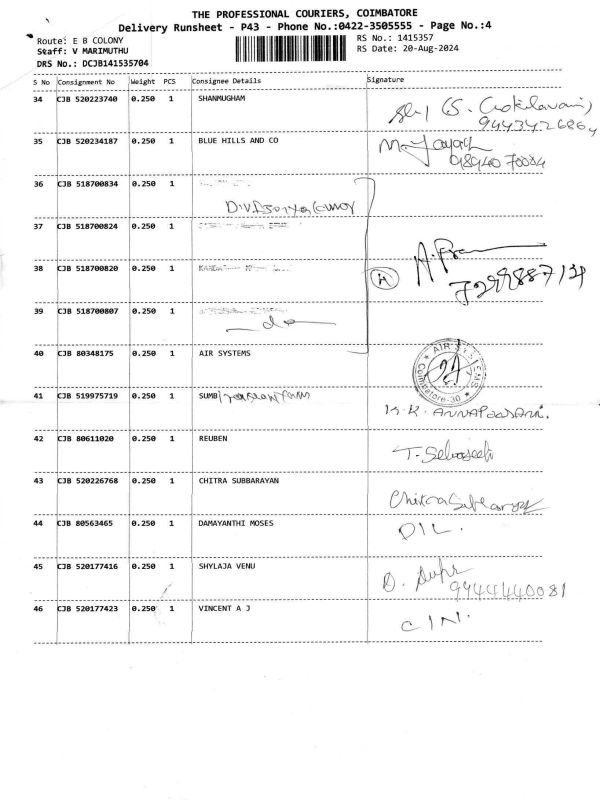 THE PROFESSIONAL COURIERS, COIMBATORE
Delivery Runsheet - P43 - Phone No.:0422-3505555 - Page No.:4
Route: E B COLONY
Staff: V MARIMUTHU
DRS No.: DCJB141535704
RS No.: 1415357
RS Date: 20-Aug-2024
S No Consignment No Weight PCS Consignee Details Signature
34 CJB 520223740 0.250 1 SHANMUGHAM
35 CJB 520234187 0.250 1 BLUE HILLS AND CO
36 CJB 518700834 0.250 1
37 CJB 518700824 0.250 1
38 CJB 518700820 0.250 1
39 CJB 518700807 0.250 1
do
40 CJB 80348175 0.250 1 AIR SYSTEMS
AIR SYSTEMS Coimbatore-30
41 CJB 519975719 0.250 1 SUMB
K.K. ANNAPOORANI.
42 CJB 80611020 0.250 1 REUBEN
43 CJB 520226768 0.250 1 CHITRA SUBBARAYAN
Chitra
44 CJB 80563465 0.250 1 DAMAYANTHI MOSES
DIL.
45 CJB 520177416 0.250 1 SHYLAJA VENU
9444440081
46 CJB 520177423 0.250 1 VINCENT A J
CIN.